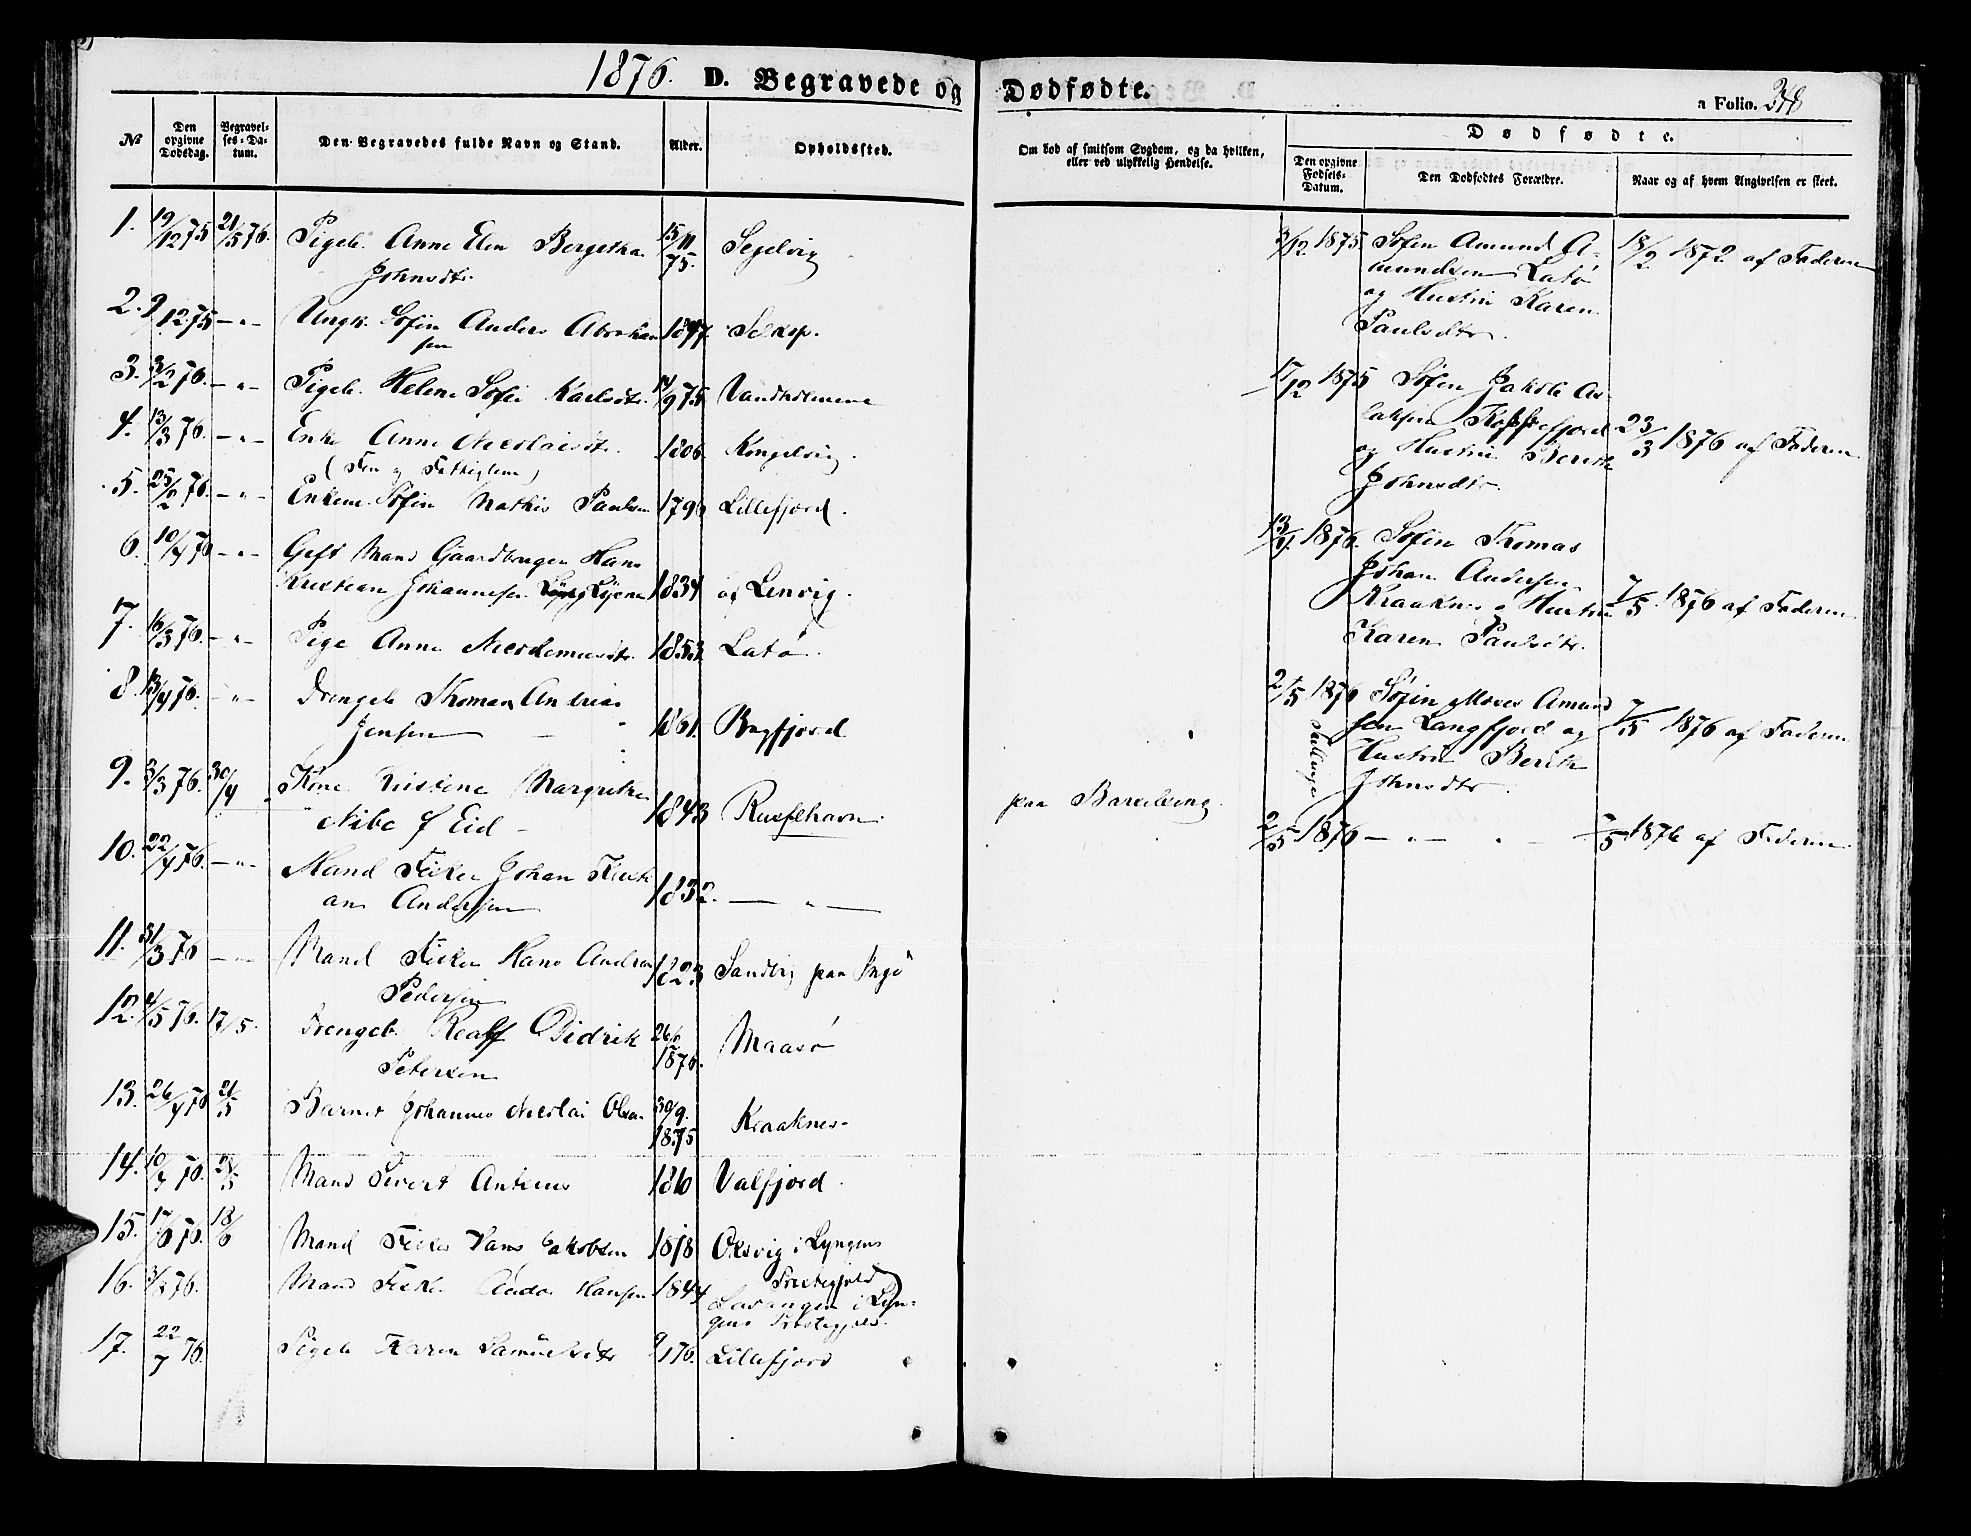 1876. D. Begravede og Dødfødte.
a Folio. 38
№ Den opgivne Dødsdag. Begravelses-Datum. Den Begravedes fulde Navn og Stand. Alder. Opholdssted.
Om død af smitsom Sygdom, og da hvilken, eller ved ulykkelig Hendelse.
Dødfødte.
Den opgivne Fødsels-Datum. Den Dødfødtes Forældre. Naar og af hvem Angivelsen er skeet.
1. 19/12 75 21/5 76. Pigeb. Anne Elen Bergetha 15/11 75. Segelvig
Johnsdtr.
2. 9/12 75 — " — Ungk. Søfin Anders Abraham 1847. Selkop.
sen
3. 3/2 76. — " — Pigeb. Helene Sofie Karlsdtr. 14/9 75 Vandholmene
4. 13/3 76. — " — Enke Anne Nicolaisdt. 1806. Kongelvig.
(Fin og Fattiglem)
5. 25/2 76. — " — Enkem. Søfin Mathis Paulsen 1796 Lillefjord.
6. 10/4 76 — " — Gift Mand Gaardbruger Hans
Kristian Johannesen 1834 af Lenvig.
7. 16/3 76. — " — Pige Anne Nicodemusdtr. 1853 Latø.
8. 13/4 76. — " — Drengeb Thomas Andreas
Jensen 1861. Bagfjord
9. 3/3 76. 30/4 Kone Kristine Margrethe
Nibe f Eid 1843 Russelhavn. paa Barselseng.
10. 22/4 76. — " — Mand Fisker Johan Kristi
an Andersen 1832. — " —
11. 31/3 76 — " — Mand Fisker Hans Andreas 1823 Sandvig paa Ingø
Pedersen
12. 4/5 76. 17/5. Drengeb. Realf Didrik 26/2 1876. Maasø
Petersen
13. 26/4 76 21/5 Barnet Johannes Nicolai Olsen 30/9. 1875 Kraaknes.
14. 10/4 76. 28/5 Mand Sivert Antenus 1810 Valfjord.
15. 17/6 76. 18/6 Mand Fisker Hans Jakobsen 1818 Oksvig i Lyngens
Præstegjeld
16. 3/2 76. Mand Fisker Andr Hansen 1844 Lavangen i Lyn-
gens Præstegjeld.
17. 22/7 76. Pigeb Karen Samuelsdtr 9/1 76. Lillefjord
3/12 1875 Søfin Amund A- 18/2 1872 af Faderen
mundsen Latø
og Hustru Karen
Paulsdtr.
17/12 1875 Søfin Jakob As-
laksen Kokkefjord 23/3 1876 af Faderen
og Hustru Berith
Johnsdtr.
13/4. 1876. Søfin Thomas
Johan Andersen
Kraaknes og Hustru 7/5. 1876 af Faderen
Karen Paulsdtr.
2/5 1876 Søfin Moses Amund
Tvillinge sen Langfjord og 7/5 1876 af Faderen
Hustru Berith
Johnsdtr.
2/5 1876 — " — 7/5 1876 af Faderen